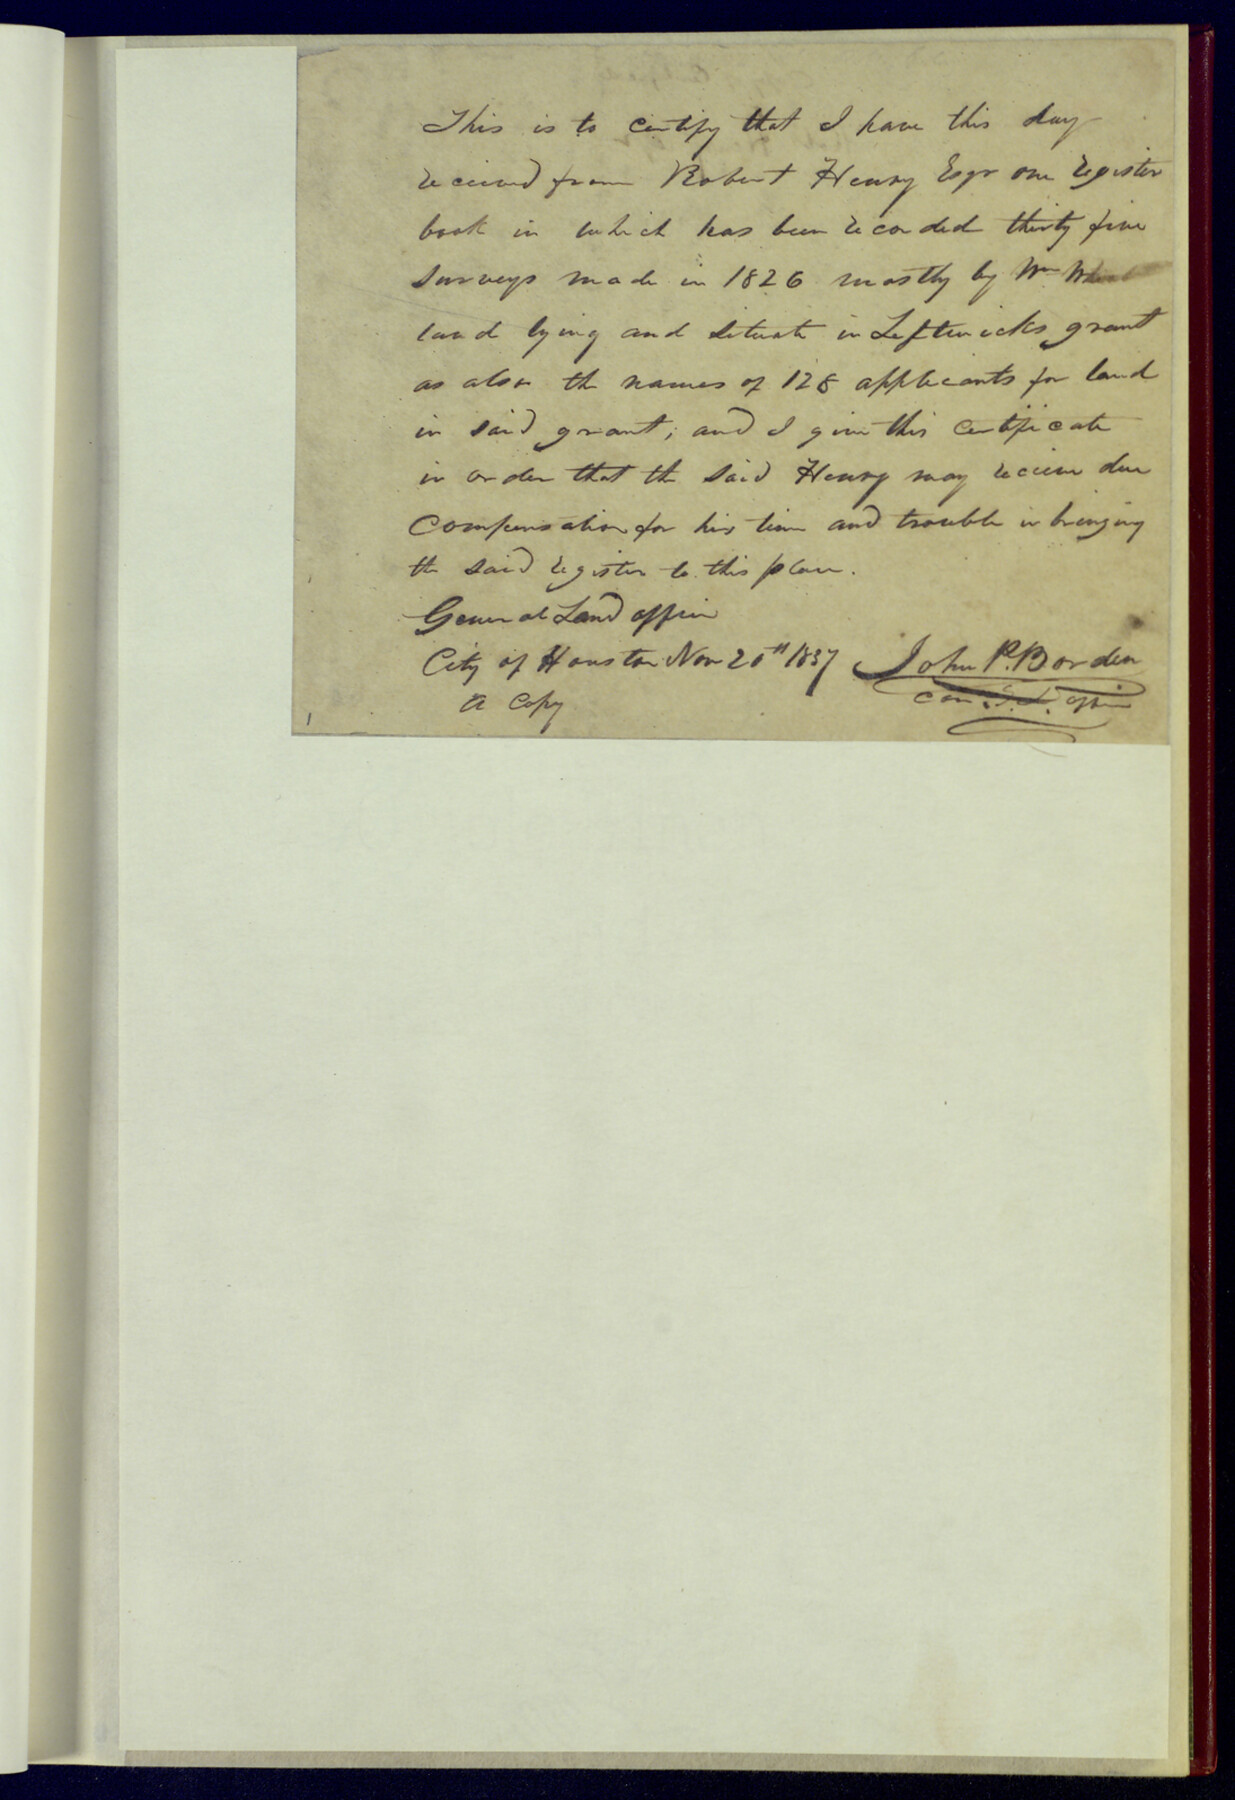 This is to certify that I have this day
received from Robert Henry Esqr one register
book in which has been recorded thirty five
surveys made in 1826 mostly by Wm
land lying and situate in Leftwicks grant
as also the names of 128 applicants for land
in said grant; and I give this certificate
in order that the said Henry may receive due
compensation for his time and trouble in bringing
the said register to this place.
General Land office
City of Houston Nov 20th 1837 John P. Borden
a copy Com. G. L. office